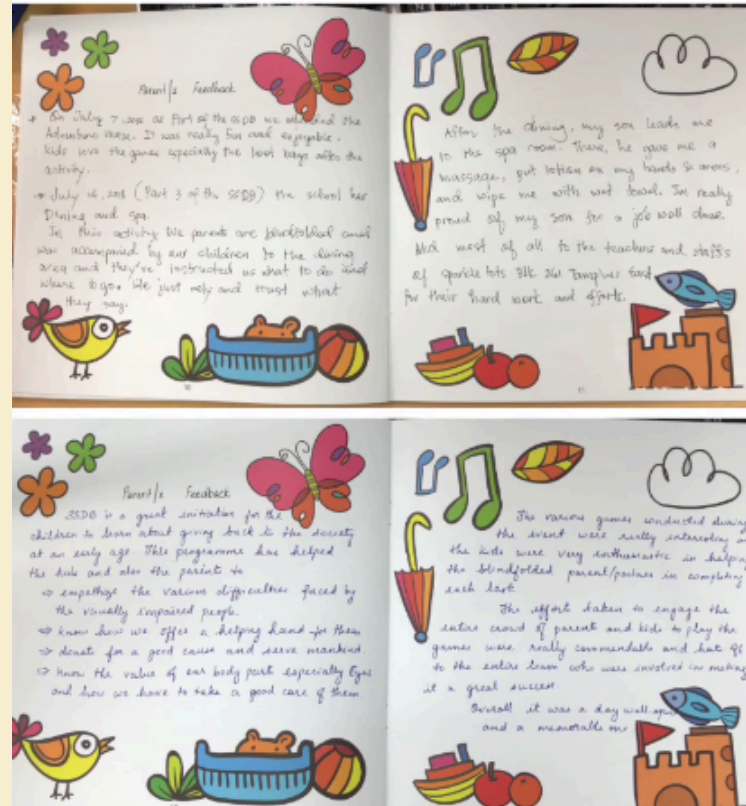 Parent/s Feedback
On July 7, 2018 as Part of the SSDB we attended the
Adventure verse. It was really fun and enjoyable.
Kids love the games especially the loot bags after the
activity.
July 14, 2018 (Part 3 of the SSDB) the school has
Dining and spa.
In this activity We parents are blindfolded and
was accompanied by our children to the dining
area and they've instructed us what to do and
where to go. We just rely and trust what
they say.
10
After the dining, my son leads me
to the spa room. There, he gave me a
massage, put lotion on my hands & areas,
and wipe me with wet towel. I'm really
proud of my son for a job well done.
And most of all to the teachers and staffs
of sparkle tots Blk 261 Tampines East
for their hard work and efforts.
11
Parent/s Feedback
SSDB is a great initiative for the
children to learn about giving back to the society
at an early age. This programme has helped
the kids and also the parents to
⇒ empathize the various difficulties faced by
the visually impaired people.
⇒ know how we offer a helping hand for them
⇒ donate for a good cause and serve mankind.
⇒ know the value of our body parts especially Eyes
and how we have to take a good care of them.
The various games conducted during
the event were really interesting
the kids were very enthusiastic in helping
the blindfolded parent/partner in completing
each task
The effort taken to engage the
entire crowd of parent and kids to play the
games were really commendable and hats off
to the entire team who were involved in making
it a great success
Overall it was a day well spent
and a memorable one